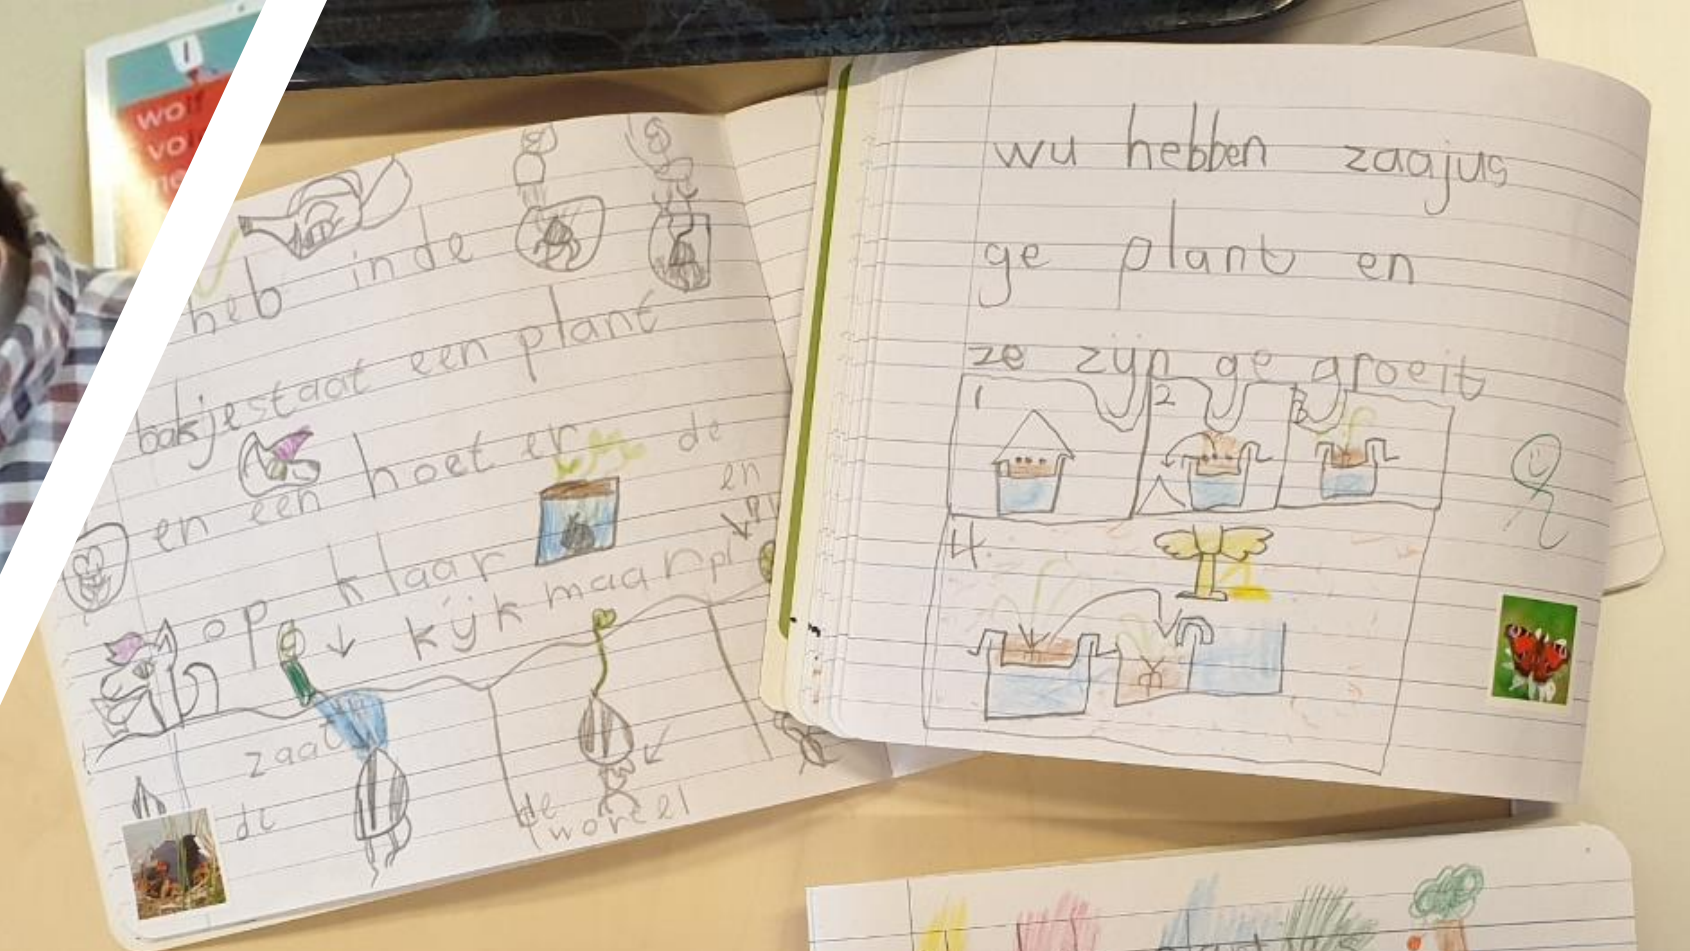 heb in de
bakjestaat een plant
en een hoet er de
en
op klaar
kijk maar pl
zaad
de
de
wortel
wu hebben zaajus
ge plant en
ze zijn ge groeit
1 2 3
4.